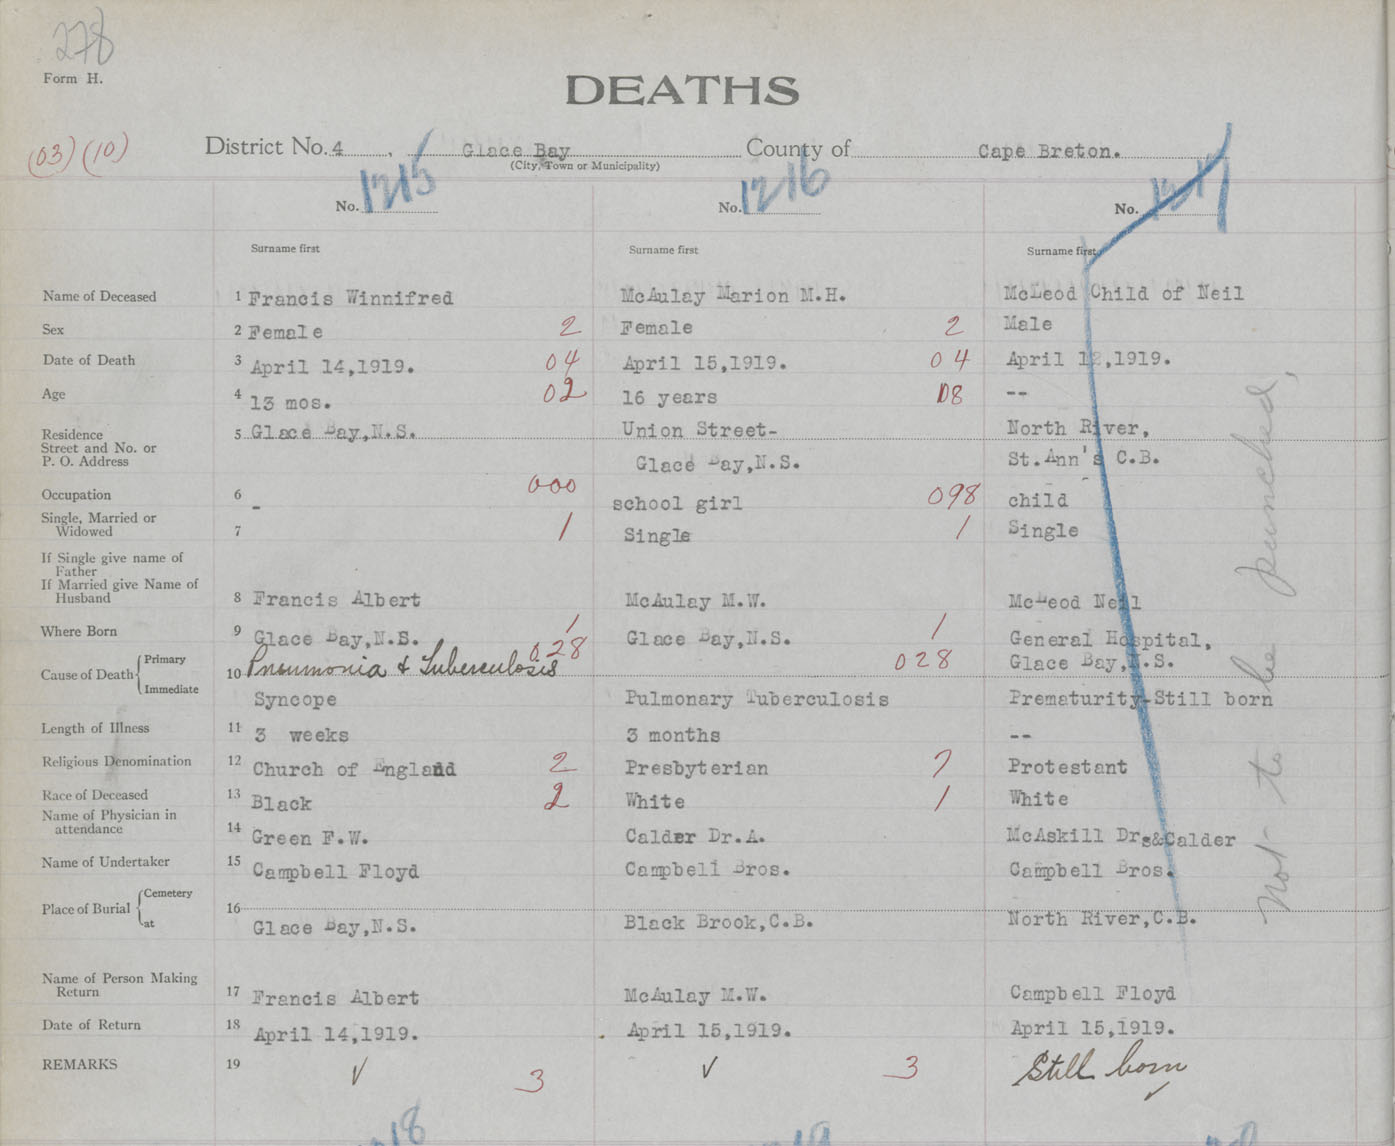 278
Form H.
DEATHS
(03) (10)
District No. 4, Glace Bay County of Cape Breton.
(City, Town or Municipality)
No. 1215 No. 1216 No. 1217
Surname first Surname first Surname first
Name of Deceased 1 Francis Winnifred McAulay Marion M.H. McLeod Child of Neil
Sex 2 Female 2 Female 2 Male
Date of Death 3 April 14,1919. 04 April 15,1919. 04 April 12,1919.
Age 4 13 mos. 02 16 years 08 --
Residence 5 Glace Bay,N.S. Union Street- North River,
Street and No. or
P. O. Address Glace Bay,N.S. St.Ann's C.B.
Occupation 6 - 000 school girl 098 child
Single, Married or
Widowed 7 1 Single 1 Single
If Single give name of
Father
If Married give Name of
Husband 8 Francis Albert McAulay M.W. McLeod Neil
Where Born 9 Glace Bay,N.S. 1 Glace Bay,N.S. 1 General Hospital,
Glace Bay,N.S.
Cause of Death Primary 10 Pneumonia & Tuberculosis 028 028
Immediate Syncope Pulmonary Tuberculosis Prematurity-Still born
Length of Illness 11 3 weeks 3 months --
Religious Denomination 12 Church of England 2 Presbyterian 7 Protestant
Race of Deceased 13 Black 2 White 1 White
Name of Physician in
attendance 14 Green F.W. Calder Dr.A. McAskill Drs&Calder
Name of Undertaker 15 Campbell Floyd Campbell Bros. Campbell Bros.
Place of Burial Cemetery 16
at Glace Bay,N.S. Black Brook,C.B. North River,C.B.
Name of Person Making
Return 17 Francis Albert McAulay M.W. Campbell Floyd
Date of Return 18 April 14,1919. April 15,1919. April 15,1919.
REMARKS 19 ✓ 3 ✓ 3 Still born ✓
Not to be punched,